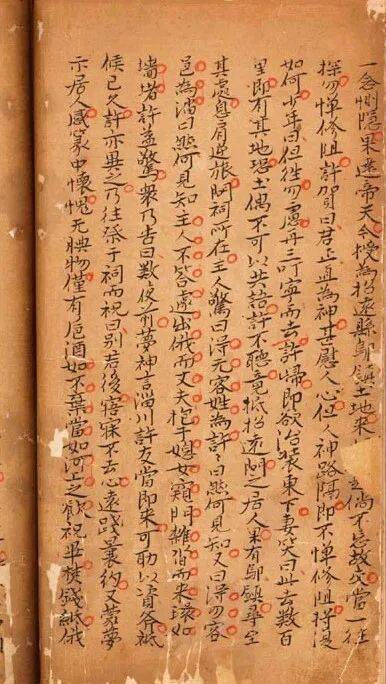 一念惻隱果達帝天今授為招遠縣鄔鎮土地來倘不忘故交當一往
探勿憚修阻許賀曰君正直為神甚慰人心但人神路隔即不憚修阻將復
如何少年曰但往勿慮再三叮寧而去許歸即欲治裝東下妻笑曰此去數百
里即有其地恐土偶不可以共語許不聽竟抵招遠問之居人果有鄔鎮尋至
其處息肩逆旅問祠所在主人驚曰得无客姓為許許曰然何見知又曰得勿客
邑為淄曰然何見知主人不答遽出俄而丈夫抱子媳女窺門雜沓而來環如
墻堵許益驚衆乃告曰數夜前夢神言淄川許友當即來可助以資斧祗
候已久許亦異之乃往祭于祠而祝曰別君後寤寐不去心遠踐曩約又蒙夢
示居人感篆中懷愧无腆物僅有卮酒如不棄當如河上之飲祝畢焚錢紙俄